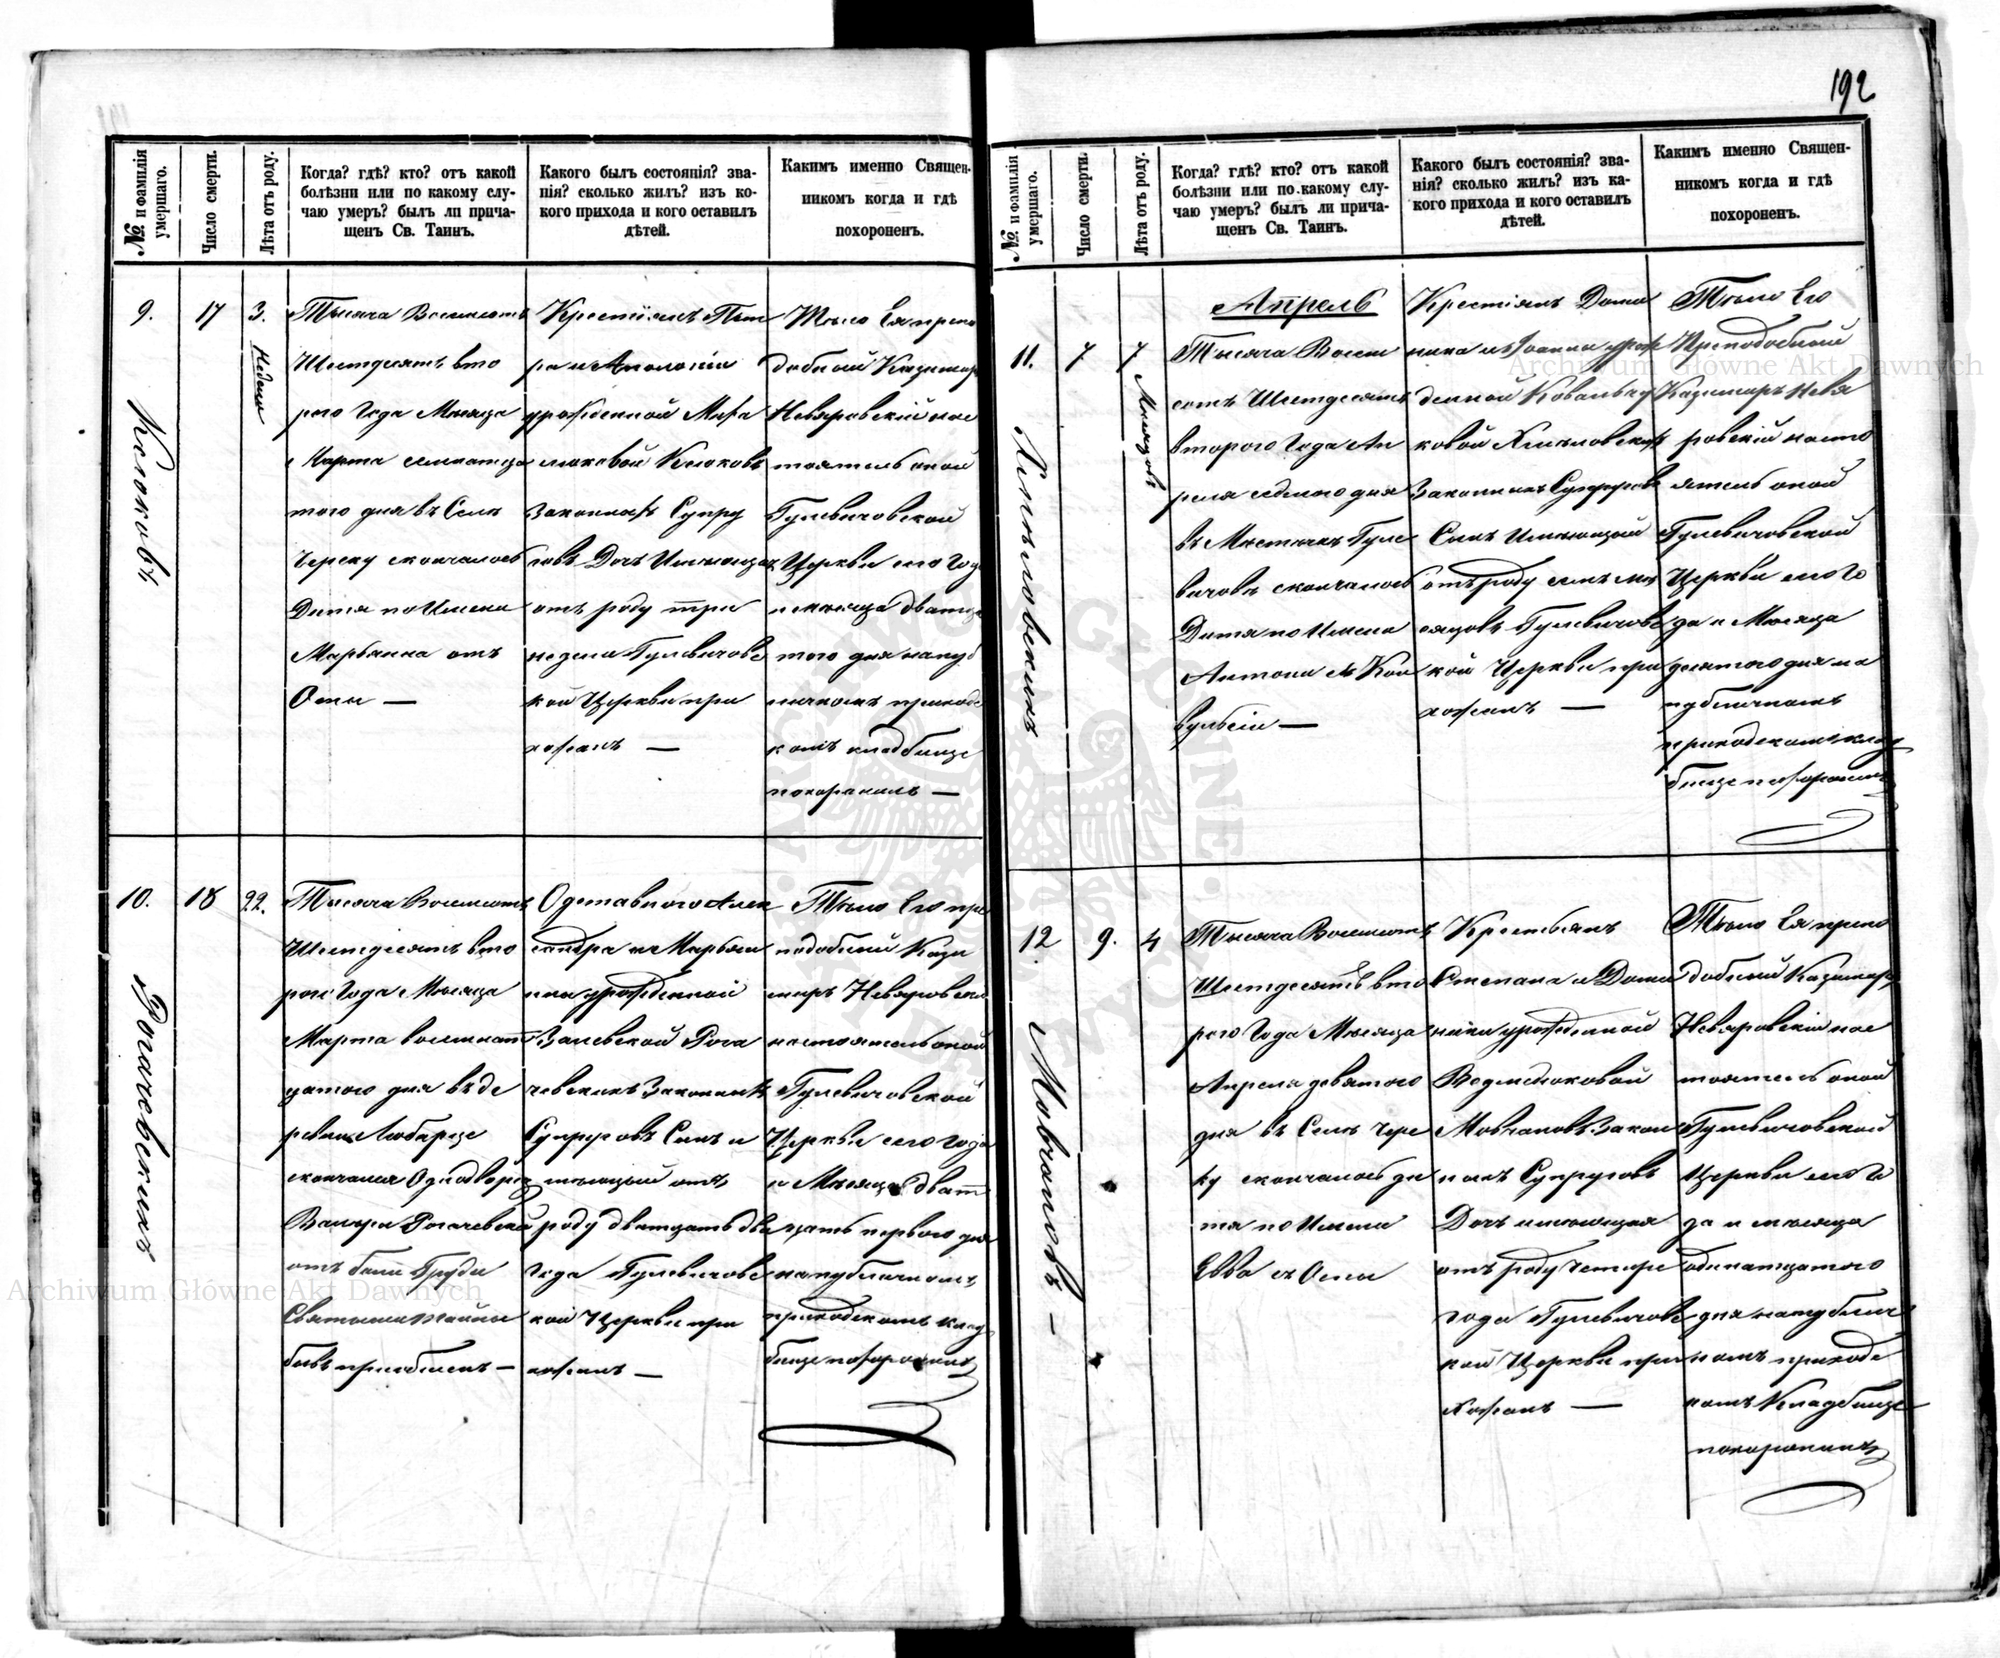 192
№ и фамилія умершаго.
Число смерти.
Лѣта отъ роду.
Когда? гдѣ? кто? отъ какой
болѣзни или по какому слу-
чаю умеръ? былъ ли прича-
щенъ Св. Таинъ.
Какого былъ состоянія? зва-
нія? сколько жилъ? изъ ко-
кого прихода и кого оставилъ
дѣтей.
Какимъ именно Священ-
никомъ когда и гдѣ
похороненъ.
9.
17
3.
Недели
Тысяча Восемсотъ
Шестдесятъ вто
рого Года Месяца
Марта семнатца
того дня въ Селѣ
Череку скончалось
Дитя по Имени
Марьянна отъ
Оспы —
Крестіянъ Пет
ра и Аполоніи
урожденной
Законныхъ Супру
говъ Дочь Имеющая
отъ роду три
недели Гулевичовс
кой Церкви при
хожанъ —
Тѣло Ея препо
добный Казимиръ
Невяровскій нас
тоятель оной
Гулевичовской
Церкви сего Года
и месяца дватца
того дня на пуб
личномъ приходс
комъ кладбище
похоронилъ —
10.
18
22.
Рогачевскихъ
Тысяча Восемсотъ
Шестдесятъ вто
рого Года Месяца
Марта восемнат
цатого дня въ де
ревни Любарце
скончался Однодворецъ
Рогачевский
отъ боли Груди
Святыми тайны
бывъ приобщенъ —
Одставного Алек
сандра и Марьян
ны урожденной
Залевской Рога
чевскихъ Законныхъ
Супруговъ Сынъ и
меющий отъ
роду дватцать два
Года Гулевичовс
кой Церкви при
хожанъ —
Тѣло Его пре
подобный Кази
миръ Невяровский
настоятель оной
Гулевичовской
Церкви сего Года
и Месяца дват
цать первого дня
на публичномъ
приходскомъ клад
бище похоронилъ
№ и фамилія умершаго.
Число смерти.
Лѣта отъ роду.
Когда? гдѣ? кто? отъ какой
болѣзни или по какому слу-
чаю умеръ? былъ ли прича-
щенъ Св. Таинъ.
Какого былъ состоянія? зва-
нія? сколько жилъ? изъ ка-
кого прихода и кого оставилъ
дѣтей.
Какимъ именно Священ-
никомъ когда и гдѣ
похороненъ.
11.
7
7
Месяцовъ
Апрель
Тысяча Восем
сотъ Шестдесятъ
второго Года Ап
реля седмого дня
въ Местечкѣ Гуле
вичовъ скончалось
Дитя по Имени
Антони съ Кон
вульсіи —
Крестіянъ Доми
ника и Іоанны урож
денной Ковальчу
ковой
Законныхъ Супруговъ
Сынъ Имеющий
отъ роду семь ме
сяцовъ Гулевичовс
кой Церкви при
хожанъ —
Тѣло Его
Преподобный
Казимиръ Невя
ровскій насто
ятель оной
Гулевичовской
Церкви сего Го
да и Месяца
девятого дня на
публичномъ
приходскомъ клад
бище похоронилъ
12.
9.
4
Мовчановъ —
Тысяча Восемсотъ
Шестдесятъ вто
рого Года Месяца
Апреля девятого
дня въ Селѣ Чере
ку скончалось ди
тя по Имени
Евва съ Оспы
Крестьянъ
Степана и Доми
ники урожденной
Ведмедюковой
Мовчановъ Закон
ныхъ Супруговъ
Дочь имеющая
отъ роду четыре
года Гулевичовс
кой Церкви при
хожанъ —
Тѣло Ея препо
добный Казимиръ
Невяровскій нас
тоятель оной
Гулевичовской
Церкви сего Го
да и месяца
одинатцатого
дня на публич
номъ приходс
комъ Кладбище
похоронилъ
Archiwum Główne Akt Dawnych
Archiwum Główne Akt Dawnych